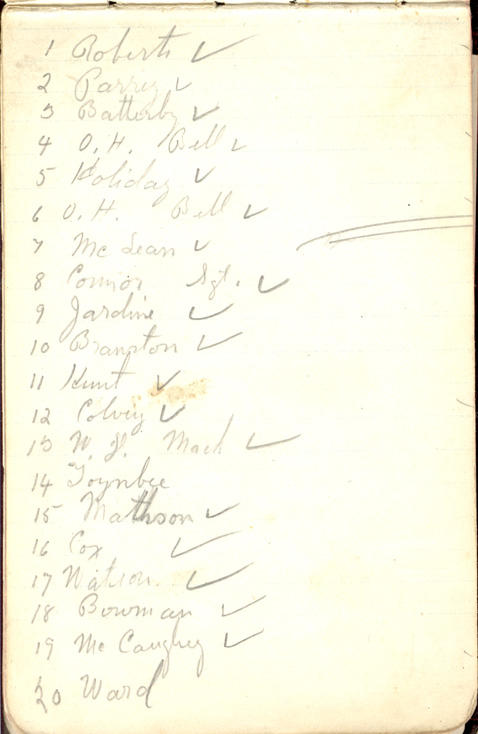 1 Roberts ✓
2 Parrey ✓
3 Batterby ✓
4 O. H. Bell ✓
5 Holiday ✓
6 O. H. Bell ✓
7 Mc Lean ✓
8 Connor Sgt. ✓
9 Jardine ✓
10 Brampton ✓
11 Hunt ✓
12 Colvey ✓
13 W. J. Mack ✓
14 Toynbee
15 Mathson ✓
16 Cox ✓
17 Watson. ✓
18 Bowman ✓
19 Mc Caughey ✓
20 Ward